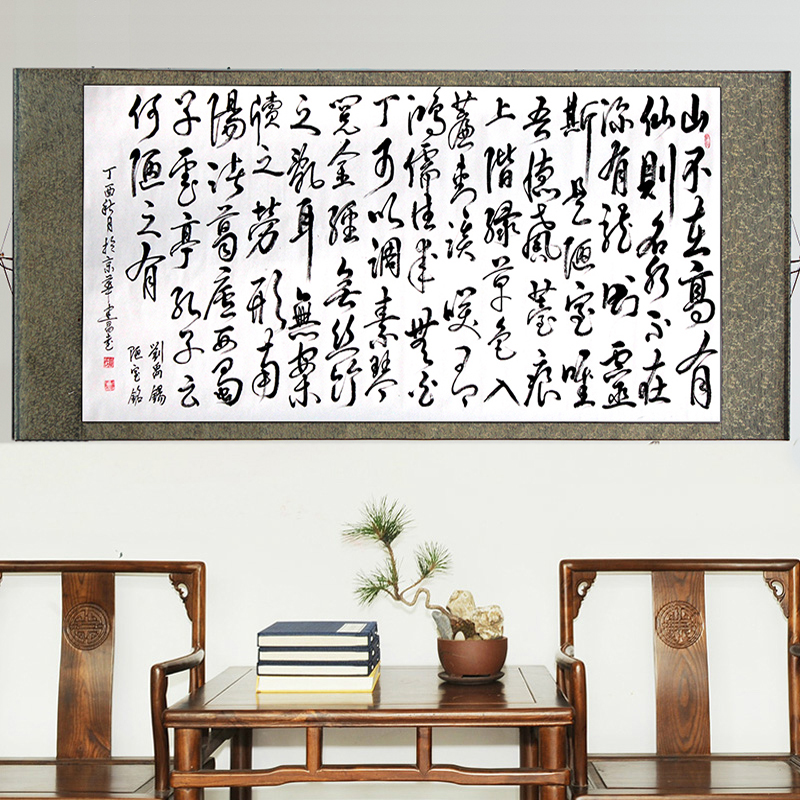 山不在高有
仙則名水不在
深有龍則靈
斯是陋室唯
吾德馨薹痕
上階綠草色入
簾青談笑有
鴻儒往來無白
丁可以調素琴
閱金經無絲竹
之亂耳無案
牘之勞形南
陽諸葛廬西蜀
子雲亭孔子云
何陋之有
劉禹錫
陋室銘
丁酉秋月於京華建昌書